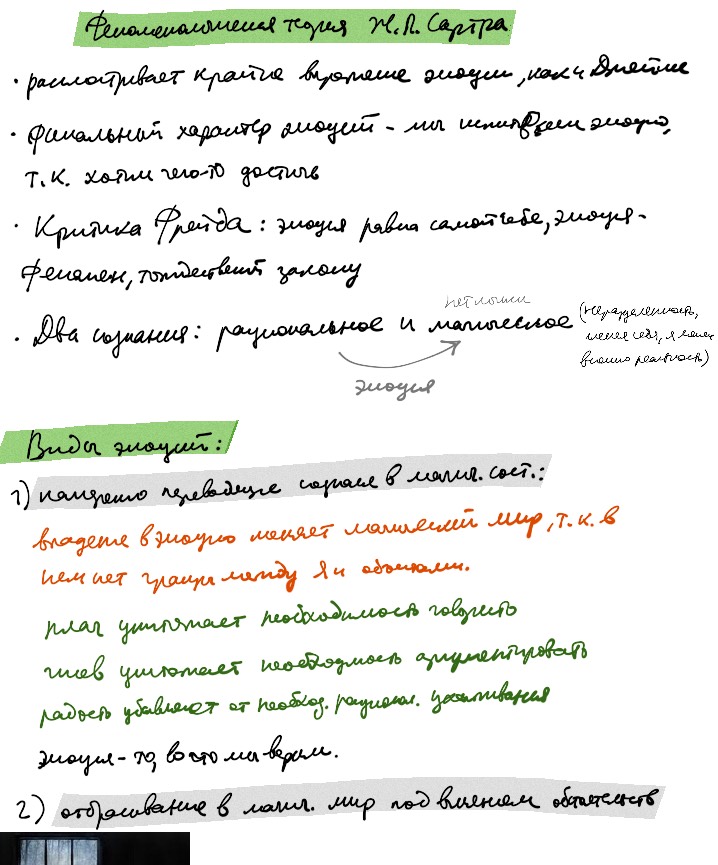 Феноменологическая теория Ж.П. Сартра
• рассматривает краткие выражение эмоции, как и Джеймс
• Финальный характер эмоций - мы используем эмоцию,
т.к. хотим чего-то достичь
• Критика Фрейда: эмоция равна самой себе, эмоция -
феномен, тождественный
нет логики
• Два сознания: рациональное и магическое (нераздельность,
меняя себя, я меняю
внешнюю реальность)
эмоция
Виды эмоций:
1) намеренно переводящие сознание в магич. сост.:
впадение в эмоцию меняет магический мир, т.к. в
нем нет границ между Я и объектами.
плач уничтожает необходимость говорить
гнев уничтожает необходимость аргументировать
радость убавляет от необход. рационал.
эмоция - то, во что мы верим.
2) отбрасывание в магич. мир под влиянием обстоятельств